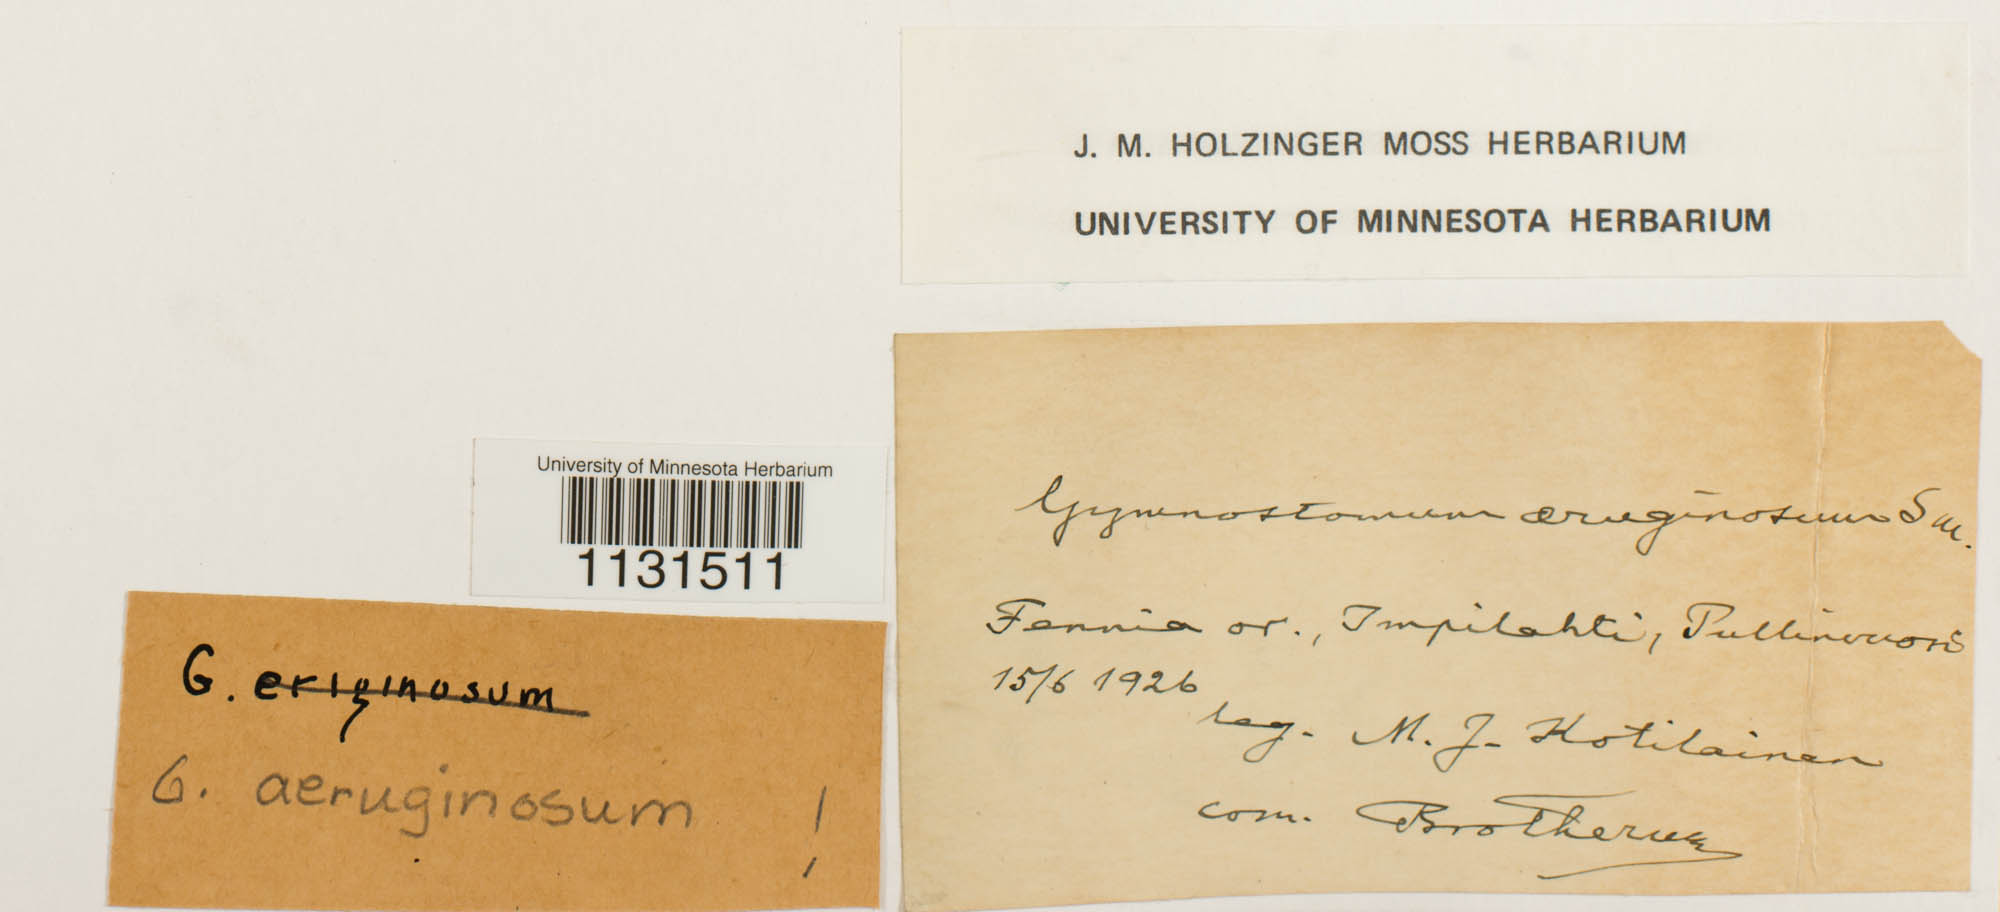 J. M. HOLZINGER MOSS HERBARIUM
UNIVERSITY OF MINNESOTA HERBARIUM
University of Minnesota Herbarium
1131511
G. eriginosum
G. aeruginosum !
Gymnostomum æruginosum Sm.
Fennia or., Impilahti, Pullinvuori
15/6 1926
leg. M. J. Kotilainen
com. Brotherus